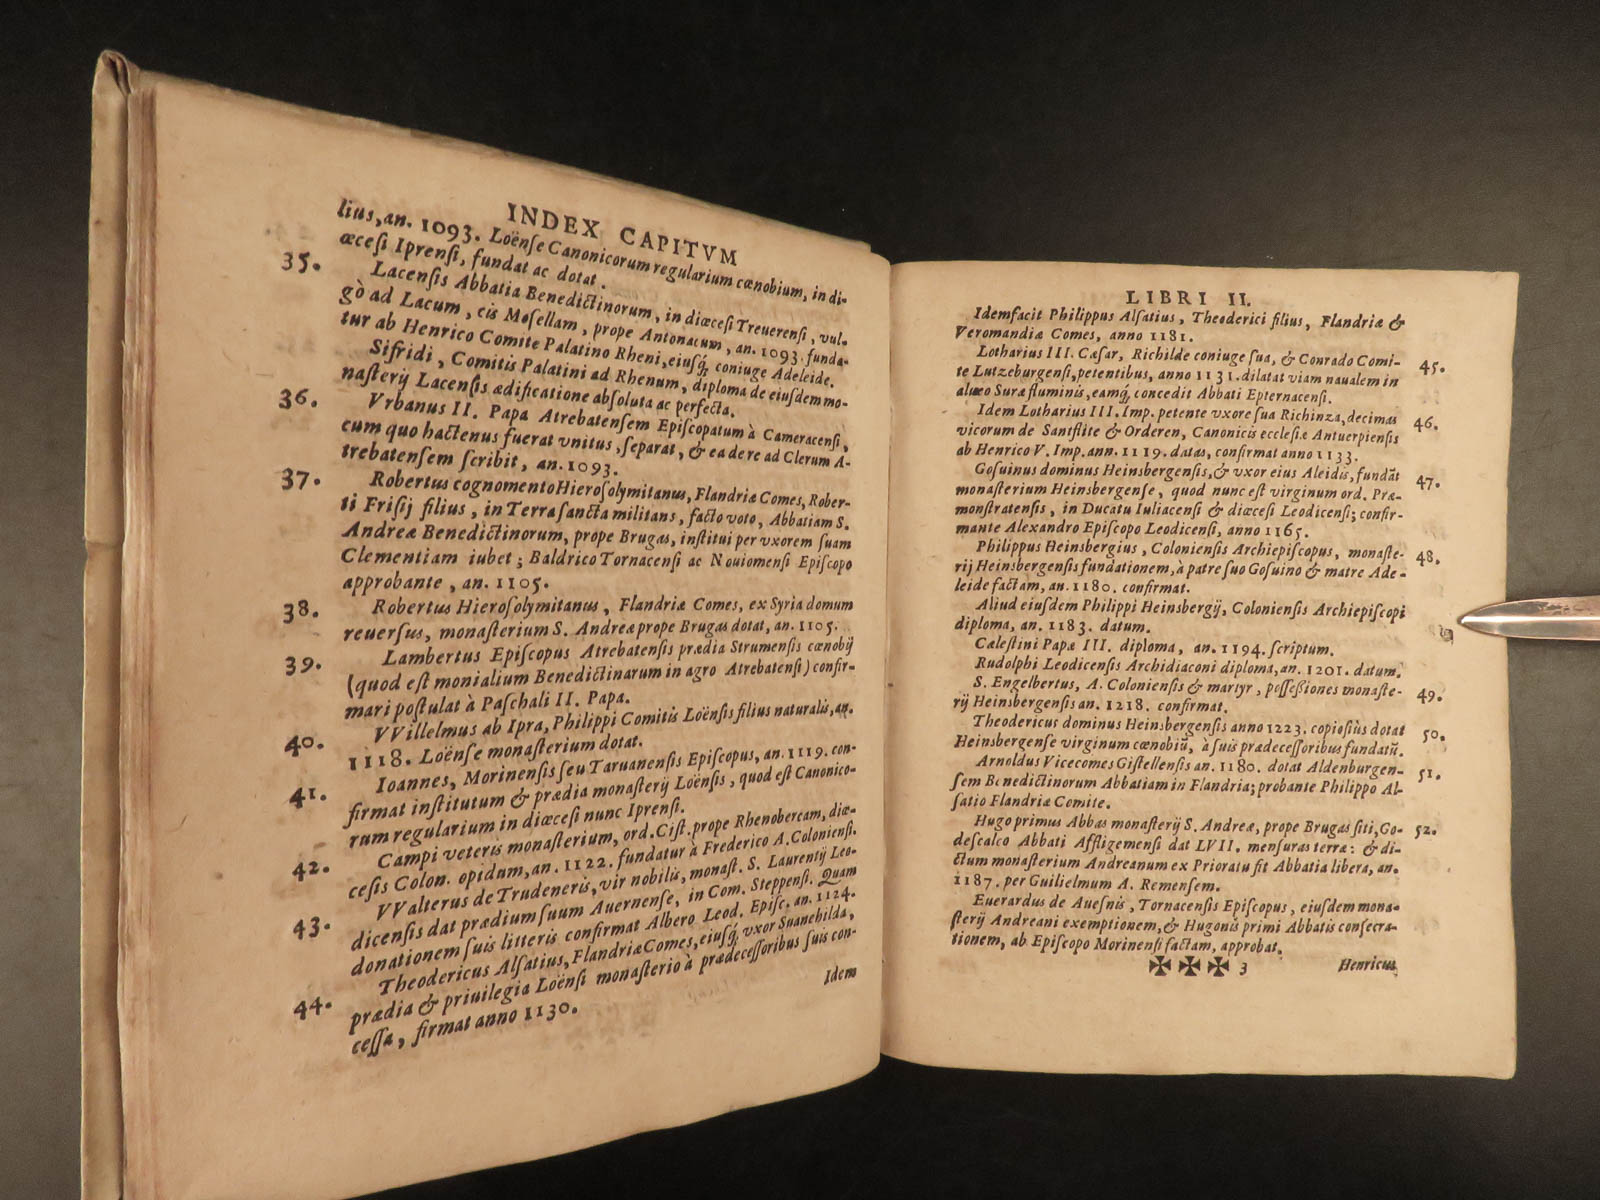 INDEX CAPITVM
lius, an. 1093. Loënſe Canonicorum regularium cœnobium, in di-
œceſi Iprenſi, fundat ac dotat.
35. Lacenſis Abbatia Benedictinorum, in diœceſi Treuerenſi, vul-
gò ad Lacum, cis Moſellam, prope Antonacum, an. 1093. funda-
tur ab Henrico Comite Palatino Rheni, eiuſq́; coniuge Adeleide.
Sifridi, Comitis Palatini ad Rhenum, diploma de eiuſdem mo-
naſterij Lacenſis ædificatione abſoluta ac perfecta.
36. Vrbanus II. Papa Atrebatenſem Epiſcopatum à Cameracenſi,
cum quo hactenus fuerat vnitus, ſeparat, & ea de re ad Clerum A-
trebatenſem ſcribit, an. 1093.
37. Robertus cognomento Hieroſolymitanus, Flandriæ Comes, Rober-
ti Friſij filius, in Terra ſancta militans, facto voto, Abbatiam S.
Andreæ Benedictinorum, prope Brugas, inſtitui per vxorem ſuam
Clementiam iubet; Baldrico Tornacenſi ac Nouiomenſi Epiſcopo
approbante, an. 1105.
38. Robertus Hieroſolymitanus, Flandriæ Comes, ex Syria domum
reuerſus, monaſterium S. Andreæ prope Brugas dotat, an. 1105.
39. Lambertus Epiſcopus Atrebatenſis prædia Strumenſis cœnobij
(quod eſt monialium Benedictinarum in agro Atrebatenſi) confir-
mari poſtulat à Paſchali II. Papa.
40. VVillelmus ab Ipra, Philippi Comitis Loënſis filius naturalis, an.
1118. Loënſe monaſterium dotat.
41. Ioannes, Morinenſis ſeu Taruanenſis Epiſcopus, an. 1119. con-
firmat inſtitutum & prædia monaſterij Loënſis, quod eſt Canonico-
rum regularium in diœceſi nunc Iprenſi.
42. Campi veteris monaſterium, ord. Ciſt. prope Rhenobercam, diœ-
ceſis Colon. opidum, an. 1122. fundatur à Frederico A. Colonienſi.
43. VValterus de Trudeneris, vir nobilis, monaſt. S. Laurentij Leo-
dicenſis dat prædium ſuum Auernenſe, in Com. Steppenſi. Quam
donationem ſuis litteris confirmat Albero Leod. Epiſc. an. 1124.
44. Theodericus Alſatius, Flandriæ Comes, eiuſq́; vxor Suanehilda,
prædia & priuilegia Loënſi monaſterio à prædeceſſoribus ſuis con-
ceſſa, firmat anno 1130.
Idem
LIBRI II.
Idem facit Philippus Alſatius, Theoderici filius, Flandriæ &
Veromandiæ Comes, anno 1181.
Lotharius III. Cæſar, Richilde coniuge ſua, & Conrado Comi- 45.
te Lutzeburgenſi, petentibus, anno 1131. dilatat viam naualem in
alueo Suræ fluminis, eamq́; concedit Abbati Epternacenſi.
Idem Lotharius III. Imp. petente vxore ſua Richinza, decimas 46.
vicorum de Santflite & Orderen, Canonicis eccleſiæ Antuerpienſis
ab Henrico V. Imp. ann. 1119. datas, confirmat anno 1133.
Goſuinus dominus Heinsbergenſis, & vxor eius Aleidis, fundāt 47.
monaſterium Heinsbergenſe, quod nunc eſt virginum ord. Præ-
monſtratenſis, in Ducatu Iuliacenſi & diœceſi Leodicenſi; confir-
mante Alexandro Epiſcopo Leodicenſi, anno 1165.
Philippus Heinsbergius, Colonienſis Archiepiſcopus, monaſte- 48.
rij Heinsbergenſis fundationem, à patre ſuo Goſuino & matre Ade-
leide factam, an. 1180. confirmat.
Aliud eiuſdem Philippi Heinsbergij, Colonienſis Archiepiſcopi
diploma, an. 1183. datum.
Cæleſtini Papæ III. diploma, an. 1194. ſcriptum.
Rudolphi Leodicenſis Archidiaconi diploma, an. 1201. datum.
S. Engelbertus, A. Colonienſis & martyr, poſſeſſiones monaſte- 49.
rij Heinsbergenſis an. 1218. confirmat.
Theodericus dominus Heinsbergenſis anno 1223. copioſiùs dotat 50.
Heinsbergenſe virginum cœnobiū, à ſuis prædeceſſoribus fundatū.
Arnoldus Vicecomes Giſtellenſis an. 1180. dotat Aldenburgen- 51.
ſem Benedictinorum Abbatiam in Flandria; probante Philippo Al-
ſatio Flandriæ Comite.
Hugo primus Abbas monaſterij S. Andreæ, prope Brugas ſiti, Go- 52.
deſcalco Abbati Affligemenſi dat LVII. menſuras terræ: & di-
ctum monaſterium Andreanum ex Prioratu fit Abbatia libera, an.
1187. per Guilielmum A. Remenſem.
Euerardus de Aueſnis, Tornacenſis Epiſcopus, eiuſdem mona-
ſterij Andreani exemptionem, & Hugonis primi Abbatis conſecra-
tionem, ab Epiſcopo Morinenſi factam, approbat.
✠ ✠ ✠ 3 Henricus